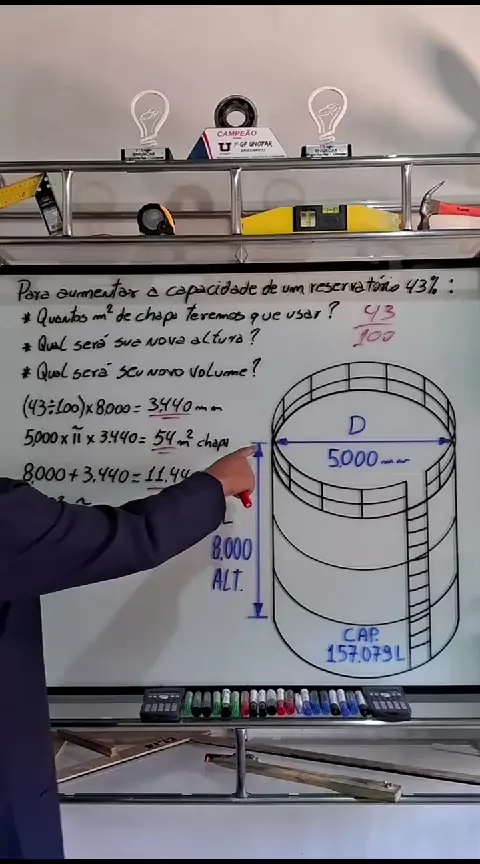 CAMPEÃO
U 1º GP UNOPAR
Para aumentar a capacidade de um reservatório 43% :
* Quantos m² de chapa teremos que usar ?
43
100
* Qual será sua nova altura ?
* Qual será seu novo volume ?
(43÷100)x8.000 = 3.440 mm
5.000 x π x 3.440 = 54 m² chapa
8.000 + 3.440 = 11.44
D
5.000 mm
8.000
ALT.
CAP.
157.079L